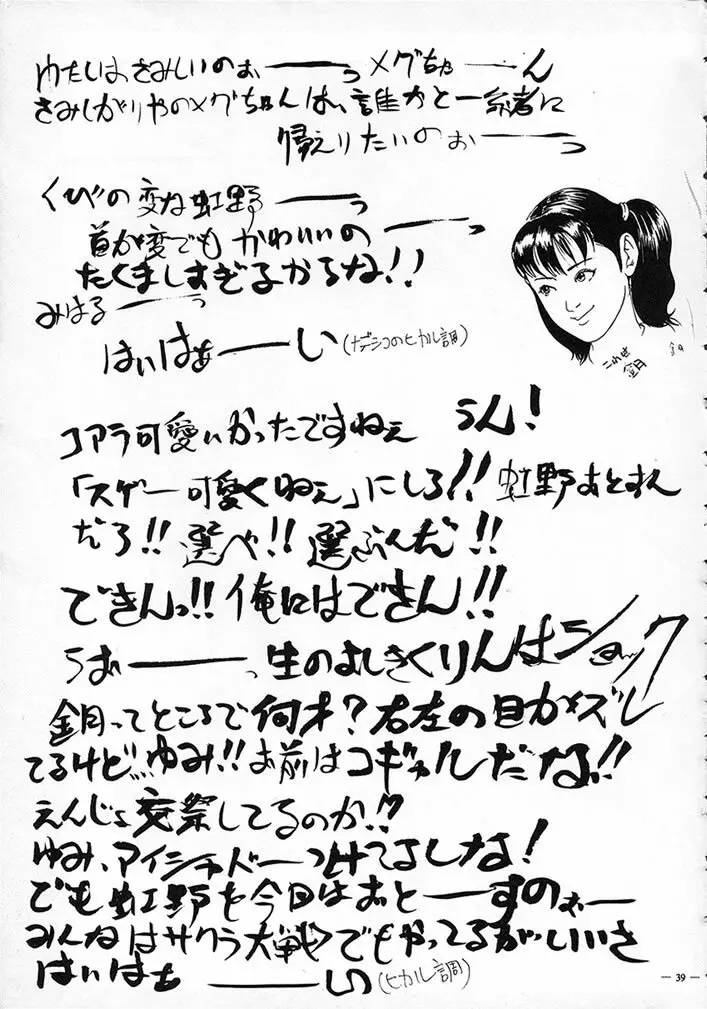 わたしはさみしいのぉーーっメグちゃーーん
さみしがりやのメグちゃんは、誰かと一緒に
帰えりたいのぉーーっ
くびの変な虹野ーーっ
首が変でもかわいいのーーっ
たくましすぎるからな!!
みはるーーっ
はいはぁーーい(ナデシコのヒカル調)
これは
鏡
コアラ可愛いかったですねぇ うん!
「スゲー可愛くねぇ」にしろ!! 虹野おとすん
だろ!!選べ!!選ぶんだ!!
できんっ!!俺にはできん!!
うおーーーっ生のよしきくりんはショック
鏡ってところで何才?右左の目がズレ
てるけど…ゆみ!!お前はコギャルだな!!
えんじょ交祭してるのか!?
ゆみ、アイシャドーつけてよしな!
でも虹野を今日はおとーーすのぉー
みんなはサクラ大戦でもやってるがいいさ
はいはぁーーい(ヒカル調)
— 39 —